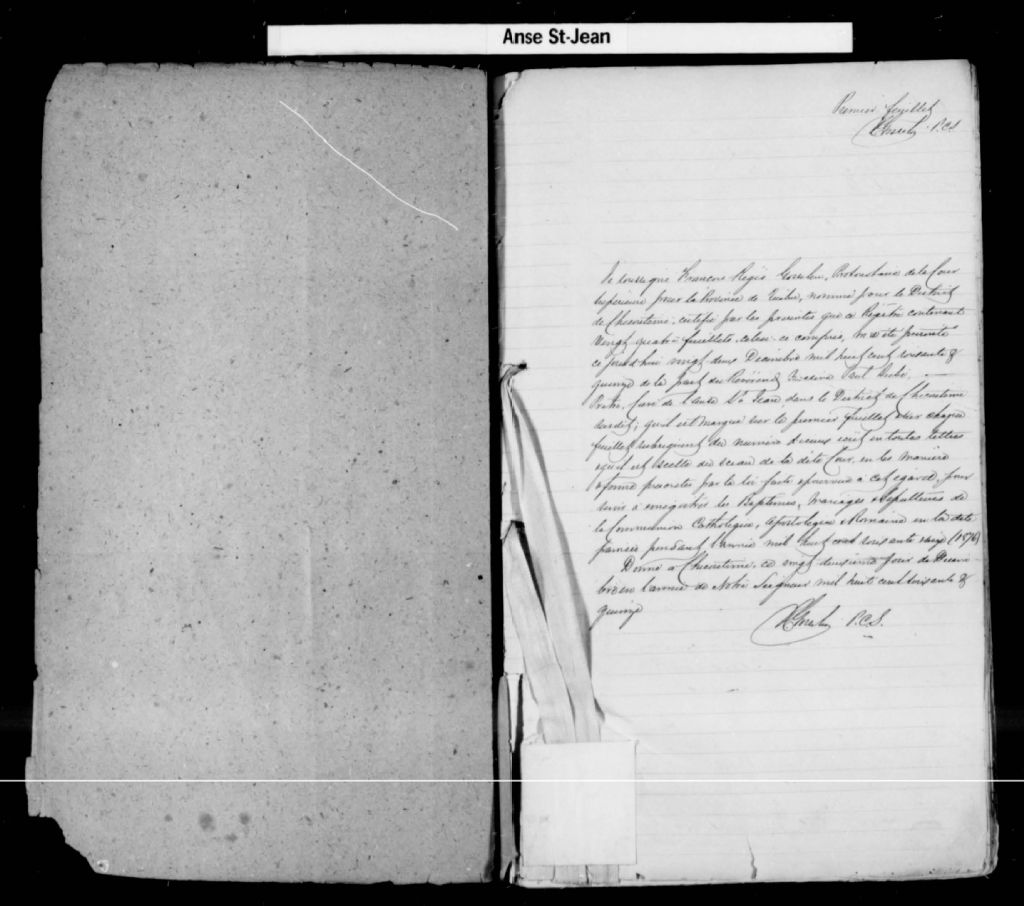 Anse St-Jean
Premier feuillet
P.C.S
Je soussigné François Régis Gosselin, Protonotaire de la Cour
Supérieure pour la Province de Québec, nommé pour le District
de Chicoutimi, certifie par les présentes que ce Régistre contenant
Vingt quatre feuillets, celui-ci compris, m'a été présenté
ce jourd'hui vingt deux Décembre mil huit cent soixante &
quinze de la part du Révérend
Prêtre, Curé de l'Anse St Jean dans le District de Chicoutimi
susdit; qu'il est marqué sur le premier feuillet & sur chaque
feuillet subséquent du numéro d'iceux écrit en toutes lettres
& qu'il est scellé du sceau de la dite Cour, en la manière
& forme prescrites par la loi faite & pourvue à cet égard, pour
servir à enregistrer les Baptêmes, Mariages & Sépultures de
la Communion Catholique, Apostolique & Romaine en la dite
paroisse pendant l'année mil huit cent soixante seize (1876)
Donné à Chicoutimi, ce vingt deuxième jour de Décem-
bre en l'année de Notre Seigneur mil huit cent soixante &
quinze
P.C.S.